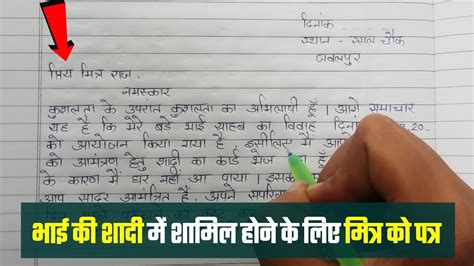 दिनांक
स्थान - रसल चौक
जबलपुर
प्रिय मित्र राज.
नमस्कार
कुशलता के उपरांत कुशलता का अभिलाषी हूँ। आगे समाचार
यह है कि मेरे बडे भाई साहब का विवाह दिनां 20
को आयोजन किया गया है इसीलिए मैं आप
को आमंत्रण हेतु शादी का कार्ड भेज हूँ
के कारण मैं घर नहीं आ पाया। इसक
आप सादर आमंत्रित हैं. अपने सपरि
भाई की शादी में शामिल होने के लिए मित्र को पत्र